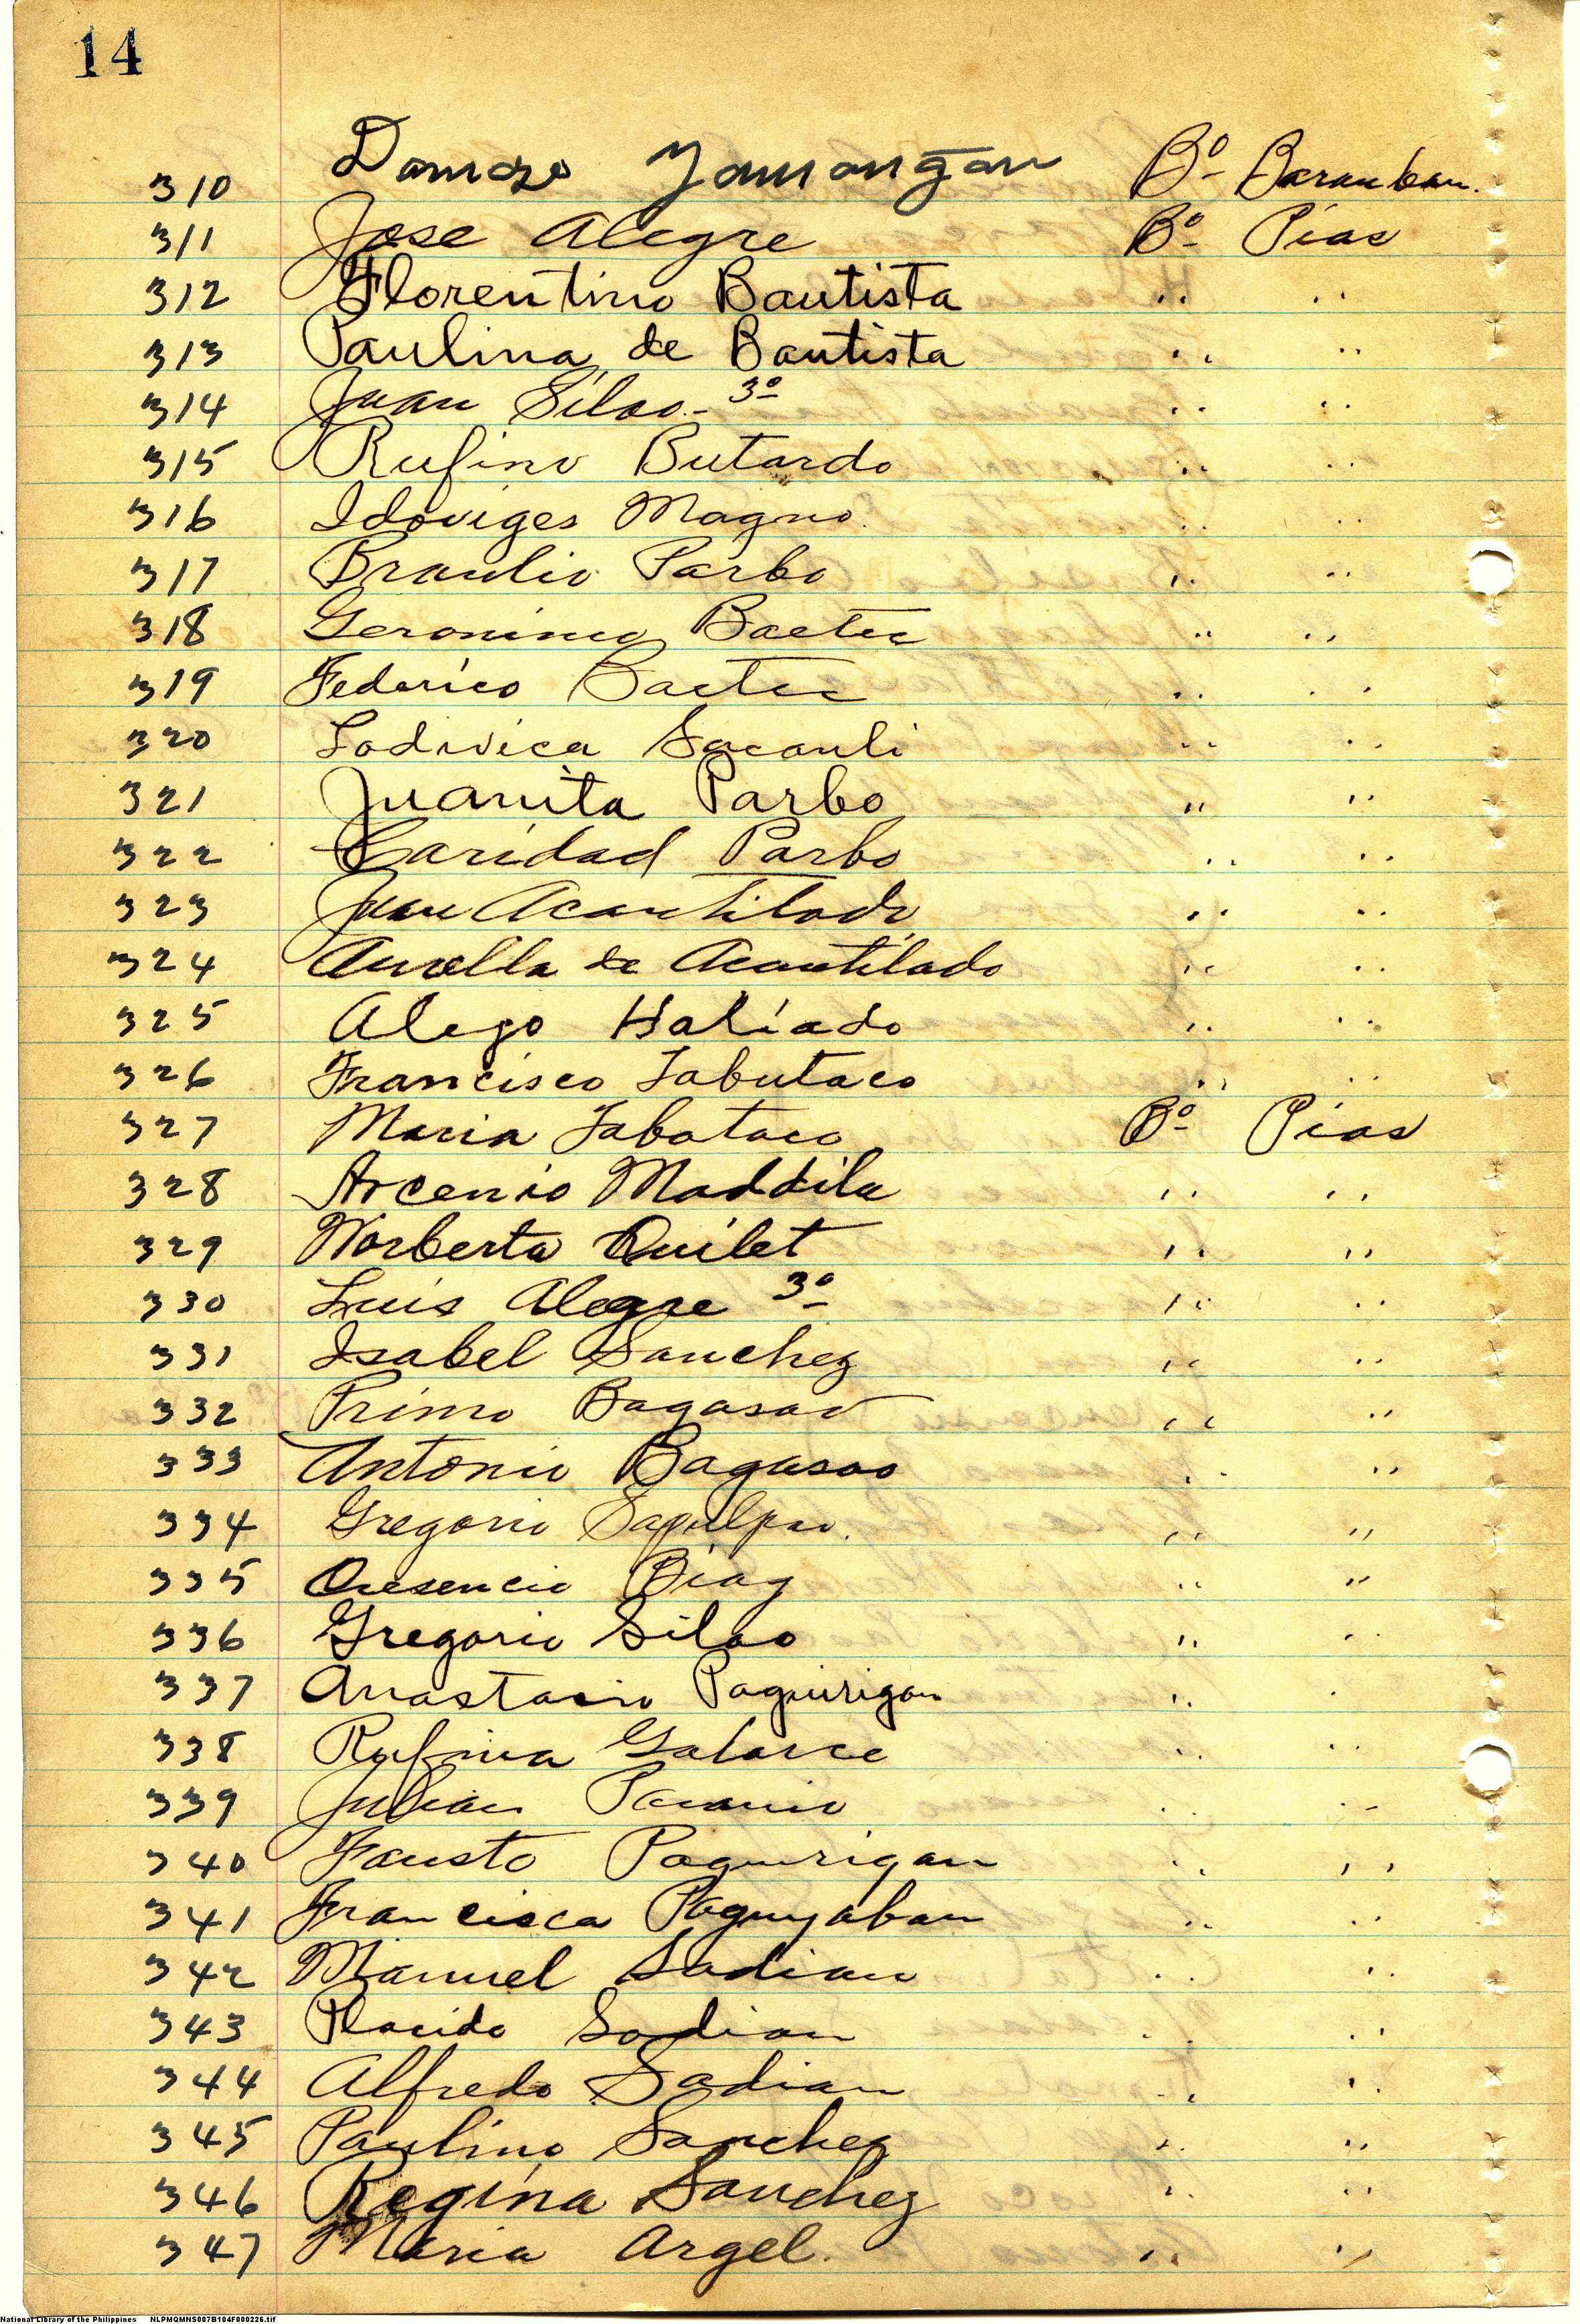 14
310 Damaso Yamongan Bº Baranban.
311 Jose Alegre Bº Pias
312 Florentino Bautista " "
313 Paulina de Bautista " "
314 Juan Silao - 3º " "
315 Rufino Butardo " "
316 Idoviges Magno. " "
317 Braulio Parbo " "
318 Geronimo Bactec " "
319 Federico Bactec " "
320 Lodivica Sacauli " "
321 Juanita Parbo " "
322 Caridad Parbo " "
323 Juan Acantilado " "
324 Aurella de Acantilado " "
325 Alejo Haliado " "
326 Francisco Tabutaco " "
327 Maria Tabotaco Bº Pias
328 Arcenio Maddila " "
329 Norberta Quilet " "
330 Luis Alegre 3º " "
331 Isabel Sanchez " "
332 Primo Bagasao " "
333 Antonio Bagasao " "
334 Gregorio " "
335 Cresencio Biag " "
336 Gregorio Silao " "
337 Anastacio Paguirigan " "
338 Rufina Galarce " "
339 Julian " "
340 Fausto Paguirigan " "
341 Francisca Paguyaban " "
342 Manuel Sadian " "
343 Placido Sadian " "
344 Alfredo Sadian " "
345 Paulino Sanchez " "
346 Regina Sanchez " "
347 Maria Argel. " "
National Library of the Philippines NLPMQMNS007B104F000226.tif